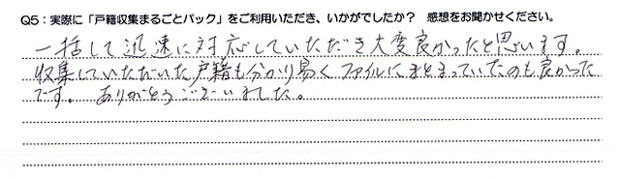 Q5：実際に「戸籍収集まるごとパック」をご利用いただき、いかがでしたか？ 感想をお聞かせください。
一括して迅速に対応していただき大変良かったと思います。
収集していただいた戸籍も分かり易くファイルにまとまっていたのも良かった
です。 ありがとうございました。